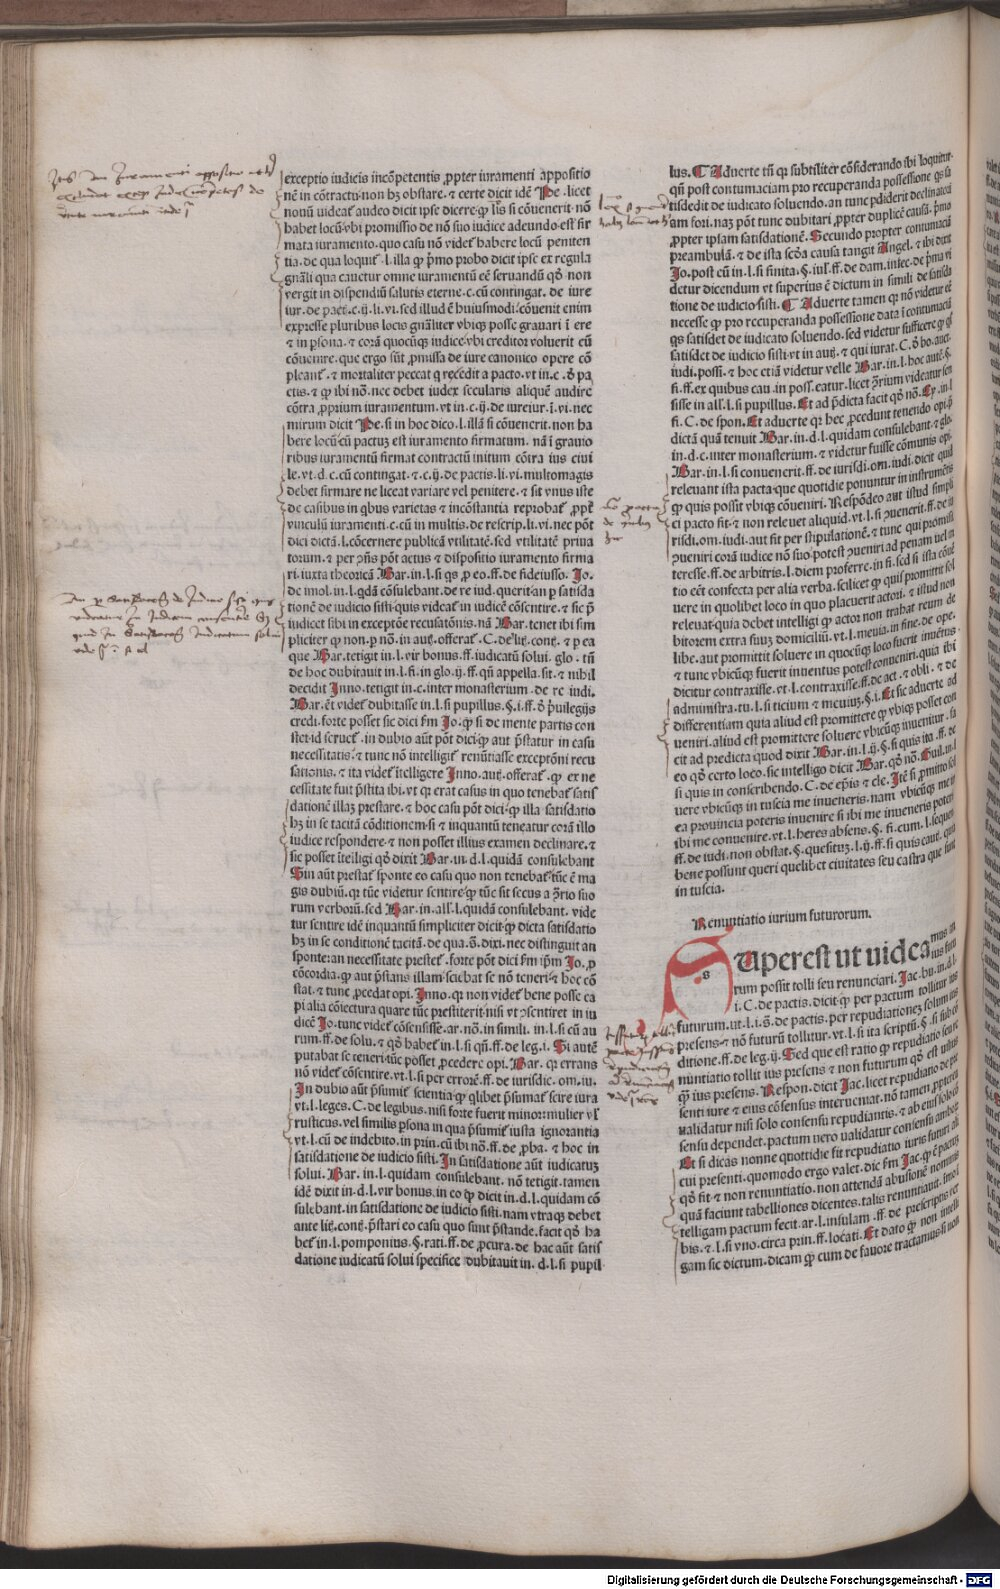 exceptio iudicis incōpetentis ꝓpter iuramenti appositio
nē in cōtractu non hʒ obstare. ⁊ certe dicit idē Pe. licet
nouū uideat̄ audeo dicit ipse dicere ꝙ lʒ si cōuenerit nō
habet locū vbi promissio de nō suo iudice adeundo est fir
mata iuramento. quo casu nō videt̄ habere locū peniten
tia. de qua loquit̄ l. illa ꝙ pꝛimo probo dicit ipse ex regula
gnāli qua cauetur omne iuramentū eē seruandū qđ non
vergit in dispendiū salutis eterne. c. cū contingat. de iure
iur. de pact. c. ij. li. vi. sed illud ē huiusmodi. cōuenit enim
expresse pluribus locis gnāliter vbiqꝫ posse grauari ī ere
⁊ in ꝑsona. ⁊ corā quocūqꝫ iudice vbi creditor voluerit cū
cōuenire. que ergo sūt ꝓmissa de iure canonico opere cō
pleant̄. ⁊ moꝛtaliter peccat q̄ recedit a pacto. vt in. c. ꝺ pa
ctis. ⁊ ꝙ ibi nō. nec debet iudex secularis aliquē audire
cōtra ꝓpꝛium iuramentum. vt in. c. ij. de iureiur. i. vi. nec
mirum dicit Pe. si in hoc dico. l. illā si cōuenerit. non ha
bere locū cū pactuꝫ est iuramento firmatum. nā ī grauio
ribus iuramentū firmat contractū initum cōtra ius ciui
le. vt. d. c. cū contingat. ⁊. c. ij. de pactis. li. vi. multomagis
debet firmare ne liceat variare vel penitere. ⁊ sit vnus iste
de casibus in qbus varietas ⁊ incōstantia reprobat̄ ꝓpt̄
vinculū iuramenti. c. cū in multis. de rescrip. li. vi. nec pōt
dici dictā. l. cōcernere publicā vtilitatē. sed vtilitatē priua
toꝛum. ⁊ per ꝯn̄s pōt actus ⁊ dispositio iuramento firma
ri. iuxta theoꝛicā Bar. in. l. si qs ꝓ eo. ff. de fideiusso. Jo.
de imol. in. l. qdā cōsulebant. de re iud. querit an ꝑ satisda
tionē de iudicio sisti quis videat̄ in iudicē cōsentire. ⁊ sic ꝑ
iudicet sibi in exceptōe recusatōnis. nā Bar. tenet ibi sim
pliciter ꝙ non. ꝑ nō. in autē. offerat̄. C. de litꝫ. contꝫ. ⁊ ꝑ ea
que Bar. tetigit in. l. vir bonus. ff. iudicatū solui. glo. tñ
de hoc dubitauit in. l. fi. in glo. ij. ff. qū appella. sit. ⁊ nihil
decidit Inno. tetigit in. c. inter monasterium. de re iudi.
Bar. ēt videt̄ dubitasse in. l. si pupillus. §. i. ff. ꝺ pꝛuilegijs
credi. foꝛte posset sic dici ꝑm Jo. ꝙ si de mente partis con
stet id seruet̄. in dubio aūt pōt dici ꝙ aut pꝛstatur in casu
necessitatis. ⁊ tunc nō intelligit̄ renūtiasse exceptōni recu
sationis. ⁊ ita videt̄ ītelligere Inno. autē. offerat̄. ꝙ ex ne
cessitate fuit pꝛstita ibi. vt ꝙ erat casus in quo tenebat̄ satis
dationē illaꝫ prestare. ⁊ hoc casu pōt dici ꝙ illa satisdatio
hʒ in se tacitā cōditionem si ⁊ inquantū teneatur corā illo
iudice respondere. ⁊ non posset illius examen declinare. ⁊
sic posset ītelligi qđ dixit Bar. in. d. l. quidā consulebant
Sin aūt pꝛestat̄ sponte eo casu quo non tenebat̄ tūc ē ma
gis dubiū. qꝛ tūc videtur sentire ꝙ tūc sit secus a ꝯ̄rio suo
rum verboꝛū. sed Bar. in. all. l. quidā consulebant. vide
tur sentire idē inquantū simpliciter dicit ꝙ dicta satisdatio
hʒ in se conditionē tacitā. de qua. ō. dixi. nec distinguit an
sponte: an necessitate prestet̄. foꝛte pōt dici ꝑm ip̄m Jo. ꝑ
cōcordia. ꝙ aut pꝛstans illam sciebat se nō teneri ⁊ hoc cō
stat. ⁊ tunc ꝓcedat opi. Inno. qꝛ non videt̄ bene posse ca
pi alia cōiectura quare tūc prestiterit nisi vt ꝯsentiret in iu
dicē Jo. tunc videt̄ cōsensisse. ar. nō. in simili. in. l. si cū au
rum. ff. de solu. ⁊ qđ habet̄ in. l. si qū. ff. de leg. i. Si autē
putabat se teneri tūc posset ꝓcedere opi. Bar. qꝛ errans
nō videt̄ cōsentire. vt. l. si per erroꝛē. ff. de iurisdic. om. iu.
In dubio aūt pꝛsumit̄ scientia ꝙ qlibet pꝛsumat̄ scire iura
vt. l. leges. C. de legibus. nisi foꝛte fuerit minor: mulier vł
rusticus. vel similis ꝑsona in qua pꝛsumit̄ iusta ignorantia
vt. l. cū de indebito. in prin. cū ibi nō. ff. de ꝓba. ⁊ hoc in
satisdatione de iudicio sisti. In satisdatione aūt iudicatuꝫ
solui. Bar. in. l. quidam consulebant. nō tetigit. tamen
idē dixit in. d. l. vir bonus. in eo ꝙ dicit in. d. l. quidam cō
sulebant. in satisdatione de iudicio sisti. nam vtraqꝫ debet
ante litꝫ. contꝫ. pꝛstari eo casu quo sunt pꝛstande. facit qđ ha
bet̄ in. l. pomponius. §. rati. ff. de ꝓcura. de hac aūt satis
datione iudicatū solui specifice dubitauit in. d. l. si pupil
lus. Aduerte tñ ꝙ subtiliter cōsiderando ibi loquitur
qū post contumaciam pro recuperanda possessione qs sa
tisdedit de iudicato soluendo. an tunc ꝑdiderit declinatōi
am fori. naꝫ pōt tunc dubitari ꝓpter duplicē causā. pꝛmo
ꝓpter ipsam satisdationē. Secundo propter contumaciā
preambulā. ⁊ de ista sedā causa tangit Angel. ⁊ ibi dicit
Jo. post cū in. l. si finita. §. iul. ff. de dam. infec. de pꝛma vi
detur dicendum vt superius ē dictum in simili de satisda
tione de iudicio sisti. Aduerte tamen ꝙ nō videtur eē
necesse ꝙ pro recuperanda possessione data ī contumaciā
qs satisdet de iudicato soluendo. sed videtur sufficere ꝙ qs
satisdet de iudicio sisti vt in autꝫ. ⁊ qui iurat. C. ꝺ bo. auct.
iudi. possi. ⁊ hoc etiā videtur velle Bar. in. l. hoc autē. §.
fi. ff. ex quibus cau. in poss. eatur. licet ꝯ̄rium videatur sen
sisse in all. l. si pupillus. Et ad pꝛdicta facit qđ nō. Cy. in. l
fi. C. de spon. Et aduerte qꝛ hec ꝓcedunt tenendo opi. pꝛ
dictā quā tenuit Bar. in. d. l. quidam consulebant. ⁊ glo.
in. d. c. inter monasterium. ⁊ videtur fuisse cōmunis opi.
Bar. in. l. si conuenerit. ff. de iurisdi. om. iudi. dicit quid
releuant ista pacta que quotidie ponuntur in instrumētis
ꝙ quis possit vbiqꝫ cōueniri. Respōdeo aut istud simpli
ci pacto fit ⁊ non releuet aliquid. vt. l. si ꝯuenerit. ff. de iu
risdi. om. iudi. aut fit per stipulationē. ⁊ tunc qui promisit
ꝯueniri corā iudice nō suo potest ꝯueniri ad penam uel in
teresse. ff. de arbitris. l. diem proferre. in fi. sed si ista cōue
tio eēt confecta per alia verba. scilicet ꝙ quis promisit sol
uere in quolibet loco in quo placuerit actoꝛi. ⁊ istud non
releuat quia debet intelligi ꝙ actor non trahat reum de
bitoꝛem extra suuꝫ domiciliū. vt. l. meuia. in fine. de ope.
libe. aut promittit soluere in quocūqꝫ loco fuerit inuētus.
⁊ tunc vbicūqꝫ fuerit inuentus potest conueniri. quia ibi
dicitur contraxisse. vt. l. contraxisse. ff. de act. ⁊ obli. ⁊ de
administra. tu. l. si titium ⁊ meuiuꝫ. §. i. Et sic aduerte ad
differentiam quia aliud est promittere ꝙ vbiqꝫ posset con
ueniri. aliud est promittere soluere vbicūqꝫ inuenitur. fa
cit ad predicta quod dixit Bar. in. l. ij. §. si quis ita. ff. de
eo qđ certo loco. sic intelligo dicit Bar. qđ nō. Guil. in. l
si quis in conscribendo. C. de epis ⁊ cle. Itē si ꝓmitto sol
uere vbicūqꝫ in tuscia me inueneris. nam vbicūqꝫ me in
ea prouincia poteris inuenire si ibi me inueneris poteri
ibi me conuenire. vt. l. heres absens. §. fi. cum. l. sequen
ff. de iudi. non obstat. §. quesituꝫ. l. ij. ff. si quis caut. quia
bene possunt queri quelibet ciuitates seu castra que sunt
in tuscia.
Renuntiatio iurium futuroꝛum.
s
Superest ut uideamus an
ius futu
rum possit tolli seu renunciari. Jac. bu. in. d. l.
i. C. de pactis. dicit ꝙ per pactum tollitur ius
futurum. ut. l. i. §. de pactis. per repudiationeꝫ solum ius
presens. ⁊ nō futurū tollitur. vt. l. si ita scriptū. §. si sub cō
ditione. ff. de leg. ij. Sed que est ratio ꝙ repudiatio seu re
nuntiatio tollit ius presens ⁊ non futurum qđ est iustius
ꝙ̄ ius presens. Respon. dicit Jac. licet repudiatio de pre
senti iure ⁊ eius cōsensus interueniat. nō tamen ꝓpterea
ualidatur nisi solo consensu repudiantis. ⁊ ab eius solo cō
sensu dependet. pactum vero ualidatur consensu amboꝛū
Et si dicas nonne quottidie fit repudiatio iuris futuri ali
cui presenti. quomodo ergo valet. dic ꝑm Jac. ꝙ ē pactuꝫ
qđ fit ⁊ non renuntiatio. non attendā abusionē nominis
quā faciunt tabelliones dicentes. talis renuntiauit. imo in
telligam pactum fecit. ar. l. insulam. ff. de prescriptis ver
bis. ⁊. l. si vno. circa prin. ff. locati. Et dato ꝙ non intelli
gam sic dictum. dicam ꝙ cum de fauoꝛe tractamus si non
Digitalisierung gefördert durch die Deutsche Forschungsgemeinschaft - DFG